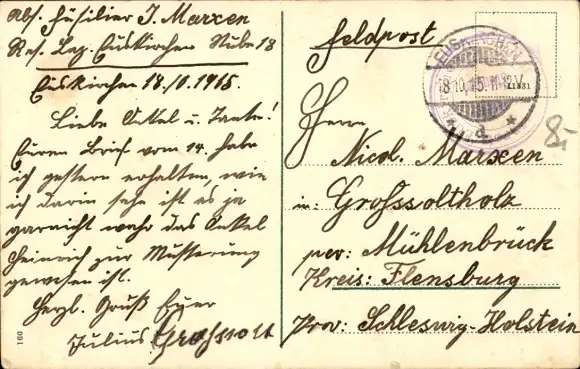 Abs. Füsilier J. Marxen
Res. Laz. Euskirchen Stube 18
Euskirchen 18./10. 1915.
Liebe Onkel u. Tante!
Euren Brief vom 14. habe
ich gestern erhalten, wie
ich darin sehe ist es ja
garnicht wahr das Onkel
Heinrich zur Musterung
gewesen ist.
Herzl. Gruß Euer
Julius
160
Feldpost
EUSKIRCHEN
18.10.15.11-12V
* a *
Herrn
Nicol. Marxen
in Grossoltholz
per: Mühlenbrück
Kreis: Flensburg
Prov: Schleswig-Holstein